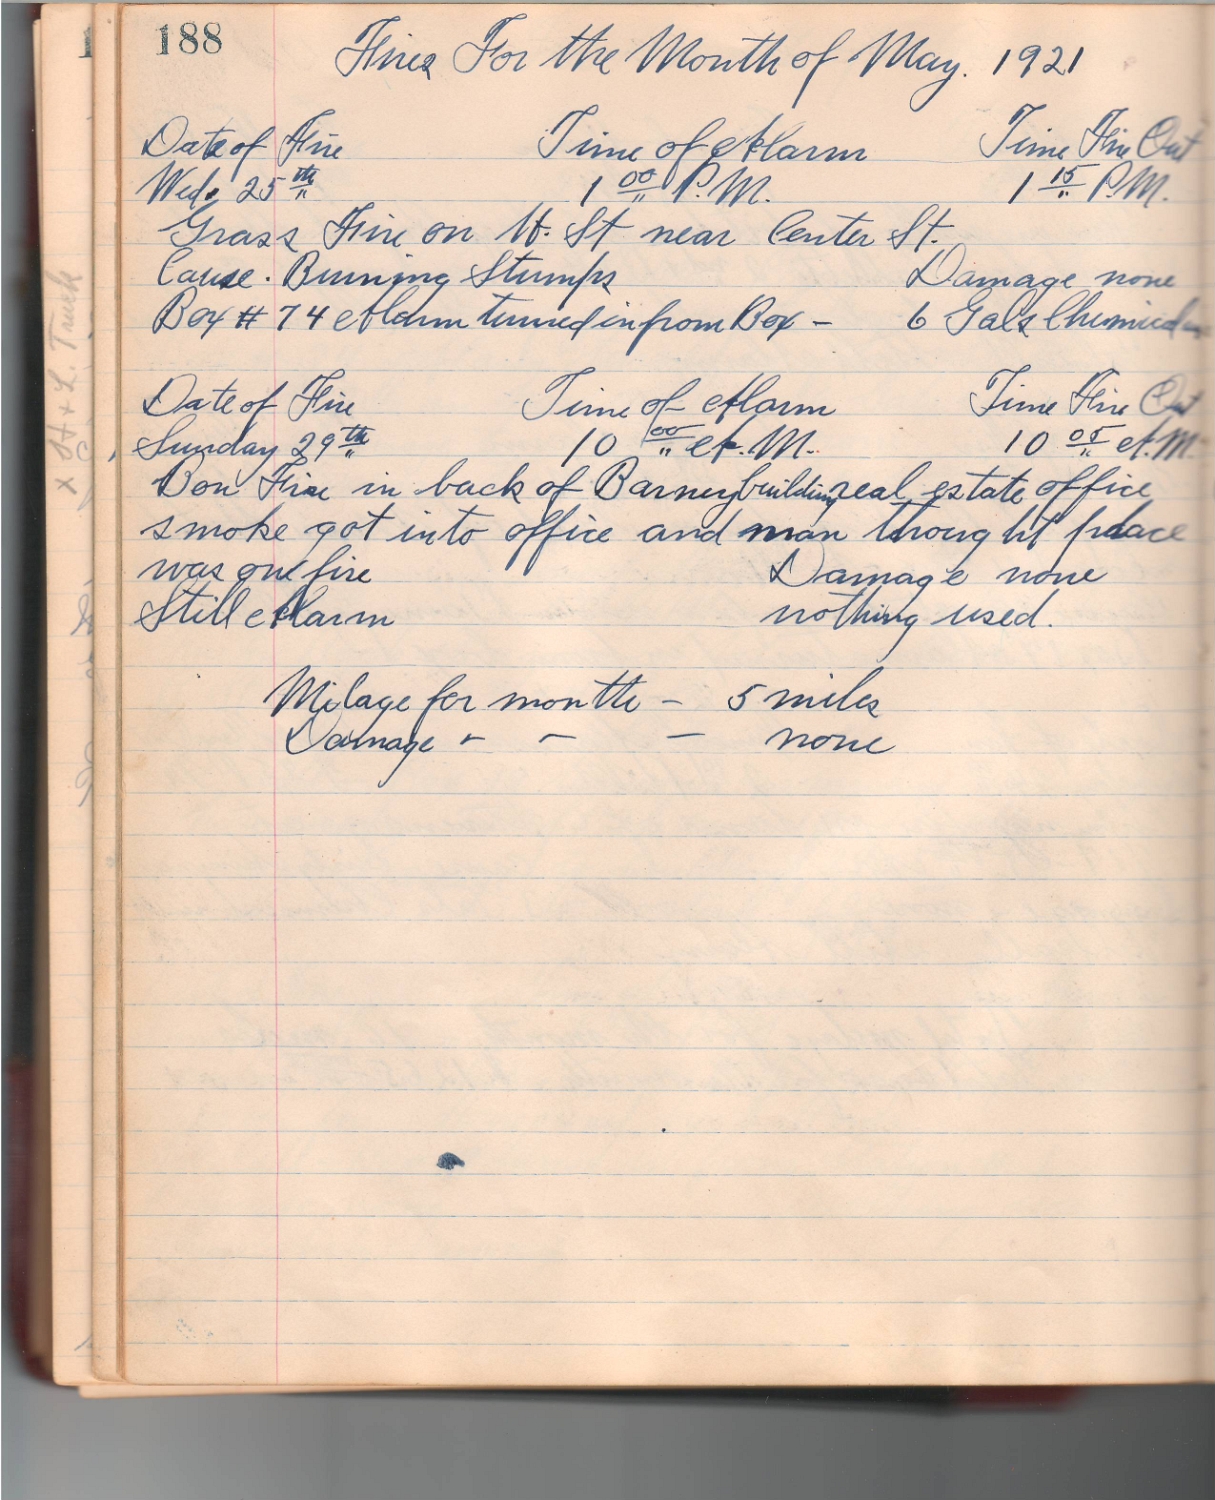 188
Fires For the Month of May. 1921
Date of Fire Time of Alarm Time Fire Out
Wed. 25th 1 00 P.M. 1 15 P.M.
Grass Fire on St near Center St.
Cause. Burning Stumps Damage none
Box # 74 Alarm turned in from Box - 6 Gals Chemical
Date of Fire Time of Alarm Time Fire Out
Sunday 29th 10 00 A.M. 10 05 A.M.
Bon Fire in back of Barney building real estate office
smoke got into office and man throught palace
was on fire Damage none
Still Alarm nothing used.
Milage for month - 5 miles
Damage " - - none
x H & L. Truck